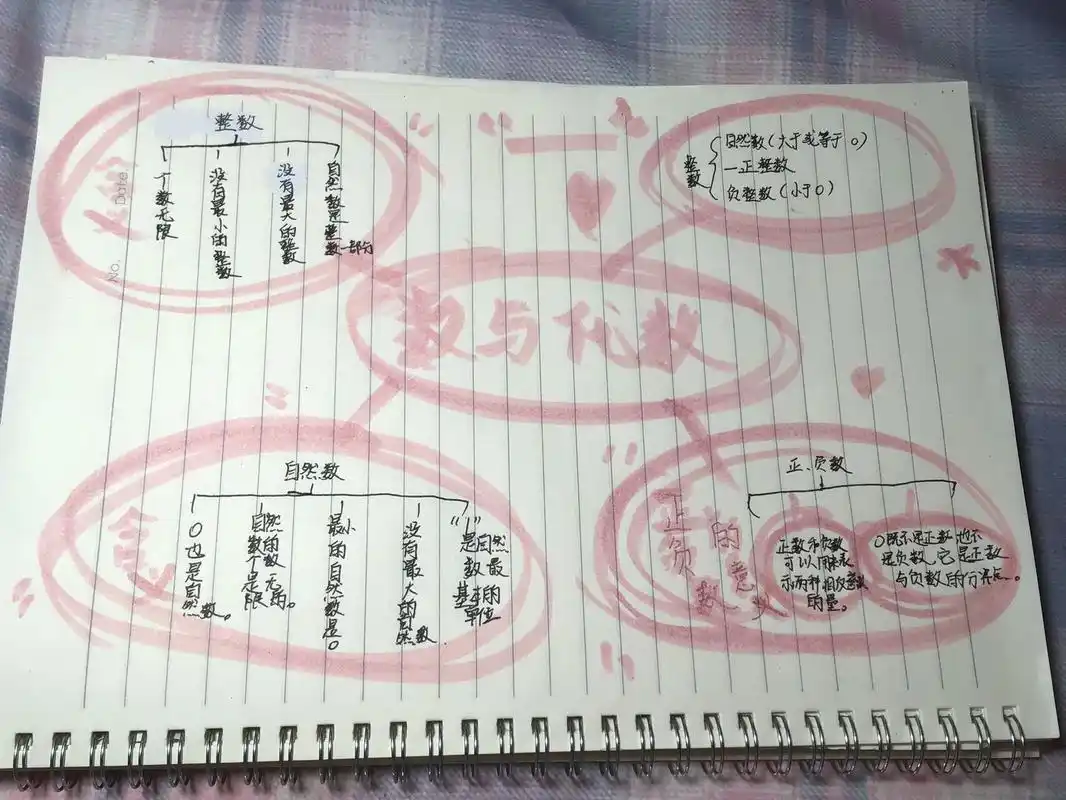 Date.
No.
数与代数
整数
个数无限
没有最小的整数
没有最大的整数
自然数是整数一部分
整数
自然数(大于或等于0)
正整数
负整数(小于0)
自然数
0也是自然数。
自然数的个数是无限。
最小的自然数是0
没有最大的自然数.
“1”是自然数最基本的单位
正、负数
正负数的意义
正数和负数
可以用来表
示两种相反意义
的量。
0既不是正数也不
是负数,它是正数
与负数的分界点。